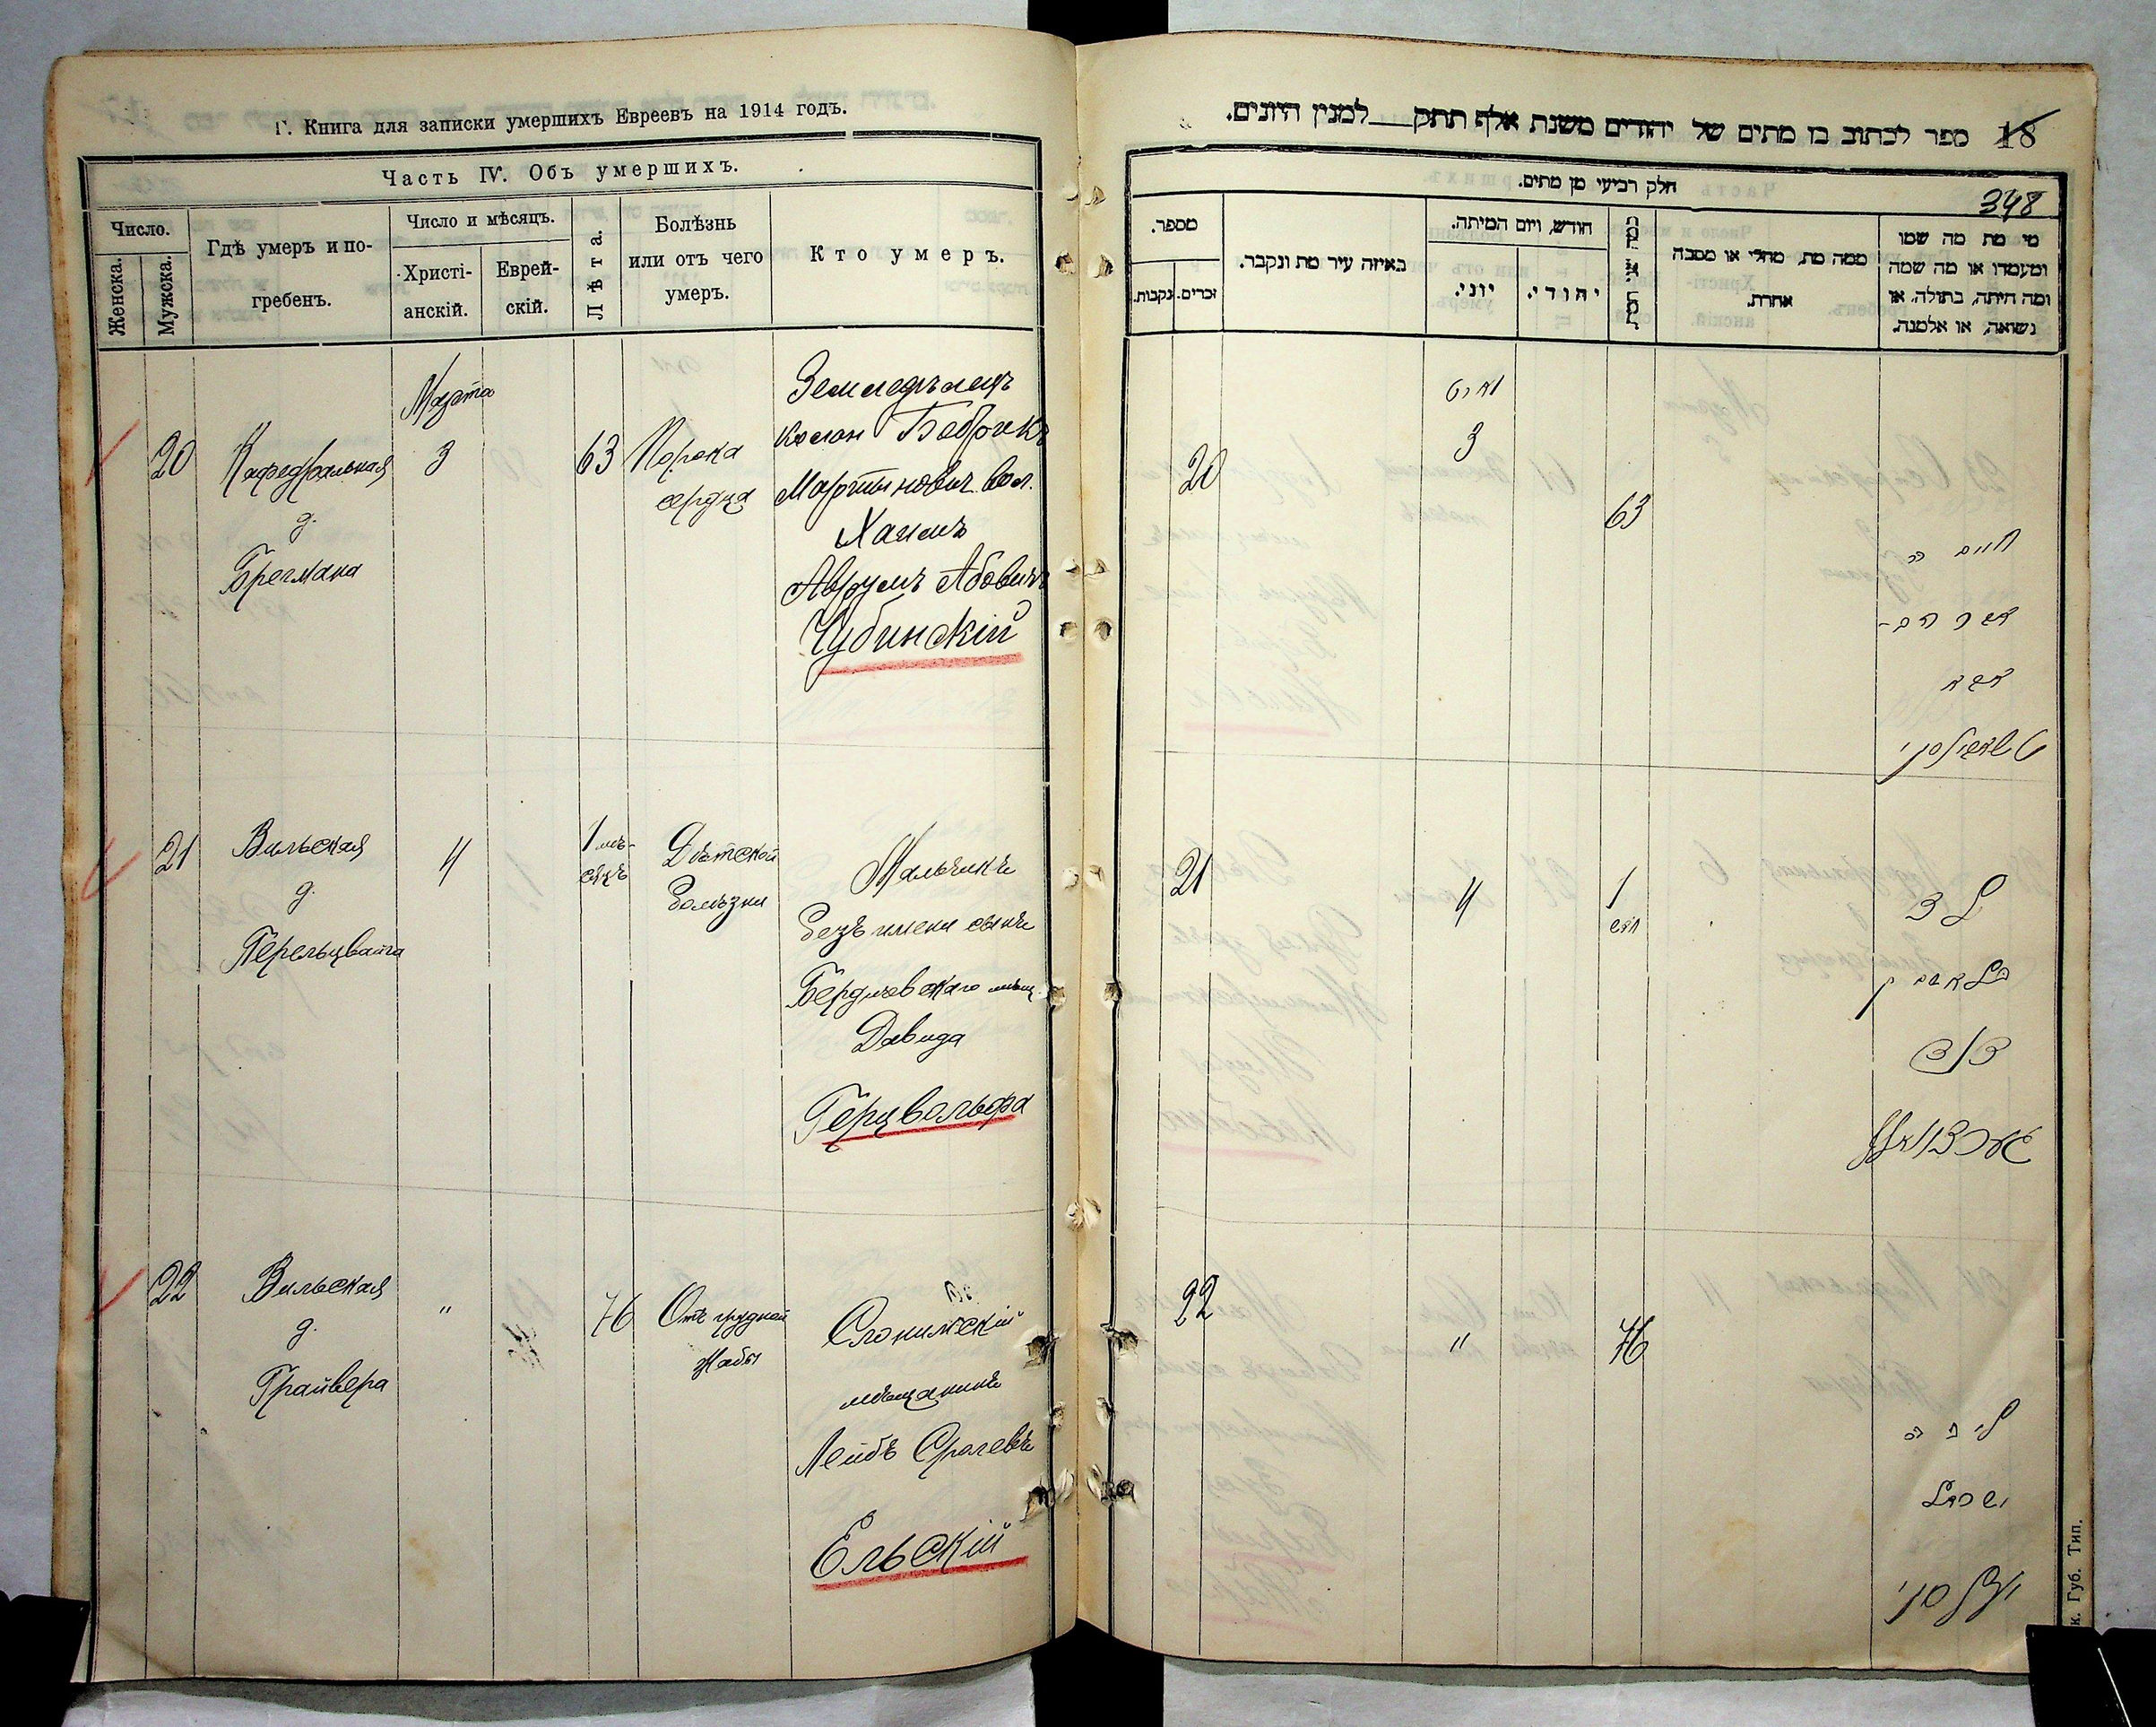 Г. Книга для записки умершихъ Евреевъ на 1914 годъ.
Часть IV. Объ умершихъ.
Число.
Женска.
Мужска.
Гдѣ умеръ и по-
гребенъ.
Число и мѣсяцъ.
Христі-
анскій.
Еврей-
скій.
Лѣта.
Болѣзнь
или отъ чего
умеръ.
Кто умеръ.
20
Кафедральная
д.
Брегмана
Марта
3
63
Порока
сердца
Земледѣлецъ
колон Бобрикъ
Мартынович. вол.
Хаимъ
Аврумъ Абовичъ
Чубинскій
21
Вильская
д.
Перельцвайга
4
1 мѣ-
сяцъ
Дѣтской
болѣзни
Мальчикъ
безъ имени сынъ
Бердичевскаго мѣщ.
Давида
Герцвольфа
22
Вильская
д.
Грайвера
"
76
Отъ грудной
жабы
Слонимскій
мѣщанинъ
Лейбъ Срулевъ
Ельскій
ספר לכתוב בו מתים של יהודים משנת אלף תתק למנין היונים.
18
348
חלק רביעי מן מתים.
מספר.
זכרים.
נקבות.
באיזה עיר מת ונקבר.
חודש, ויום המיתה.
יוני.
יהודי.
ממה מת, מחלי או מסבה
אחרת.
מי מת מה שמו
ומעמדו או מה שמה
ומה היתה, בתולה, או
נשואה, או אלמנה.
20
מארט
3
63
חיים
אברהם
אבא
21
4
1
חדש
דוד
22
"
76
ליב
ישראל
יעלסקי
к. Губ. Тип.